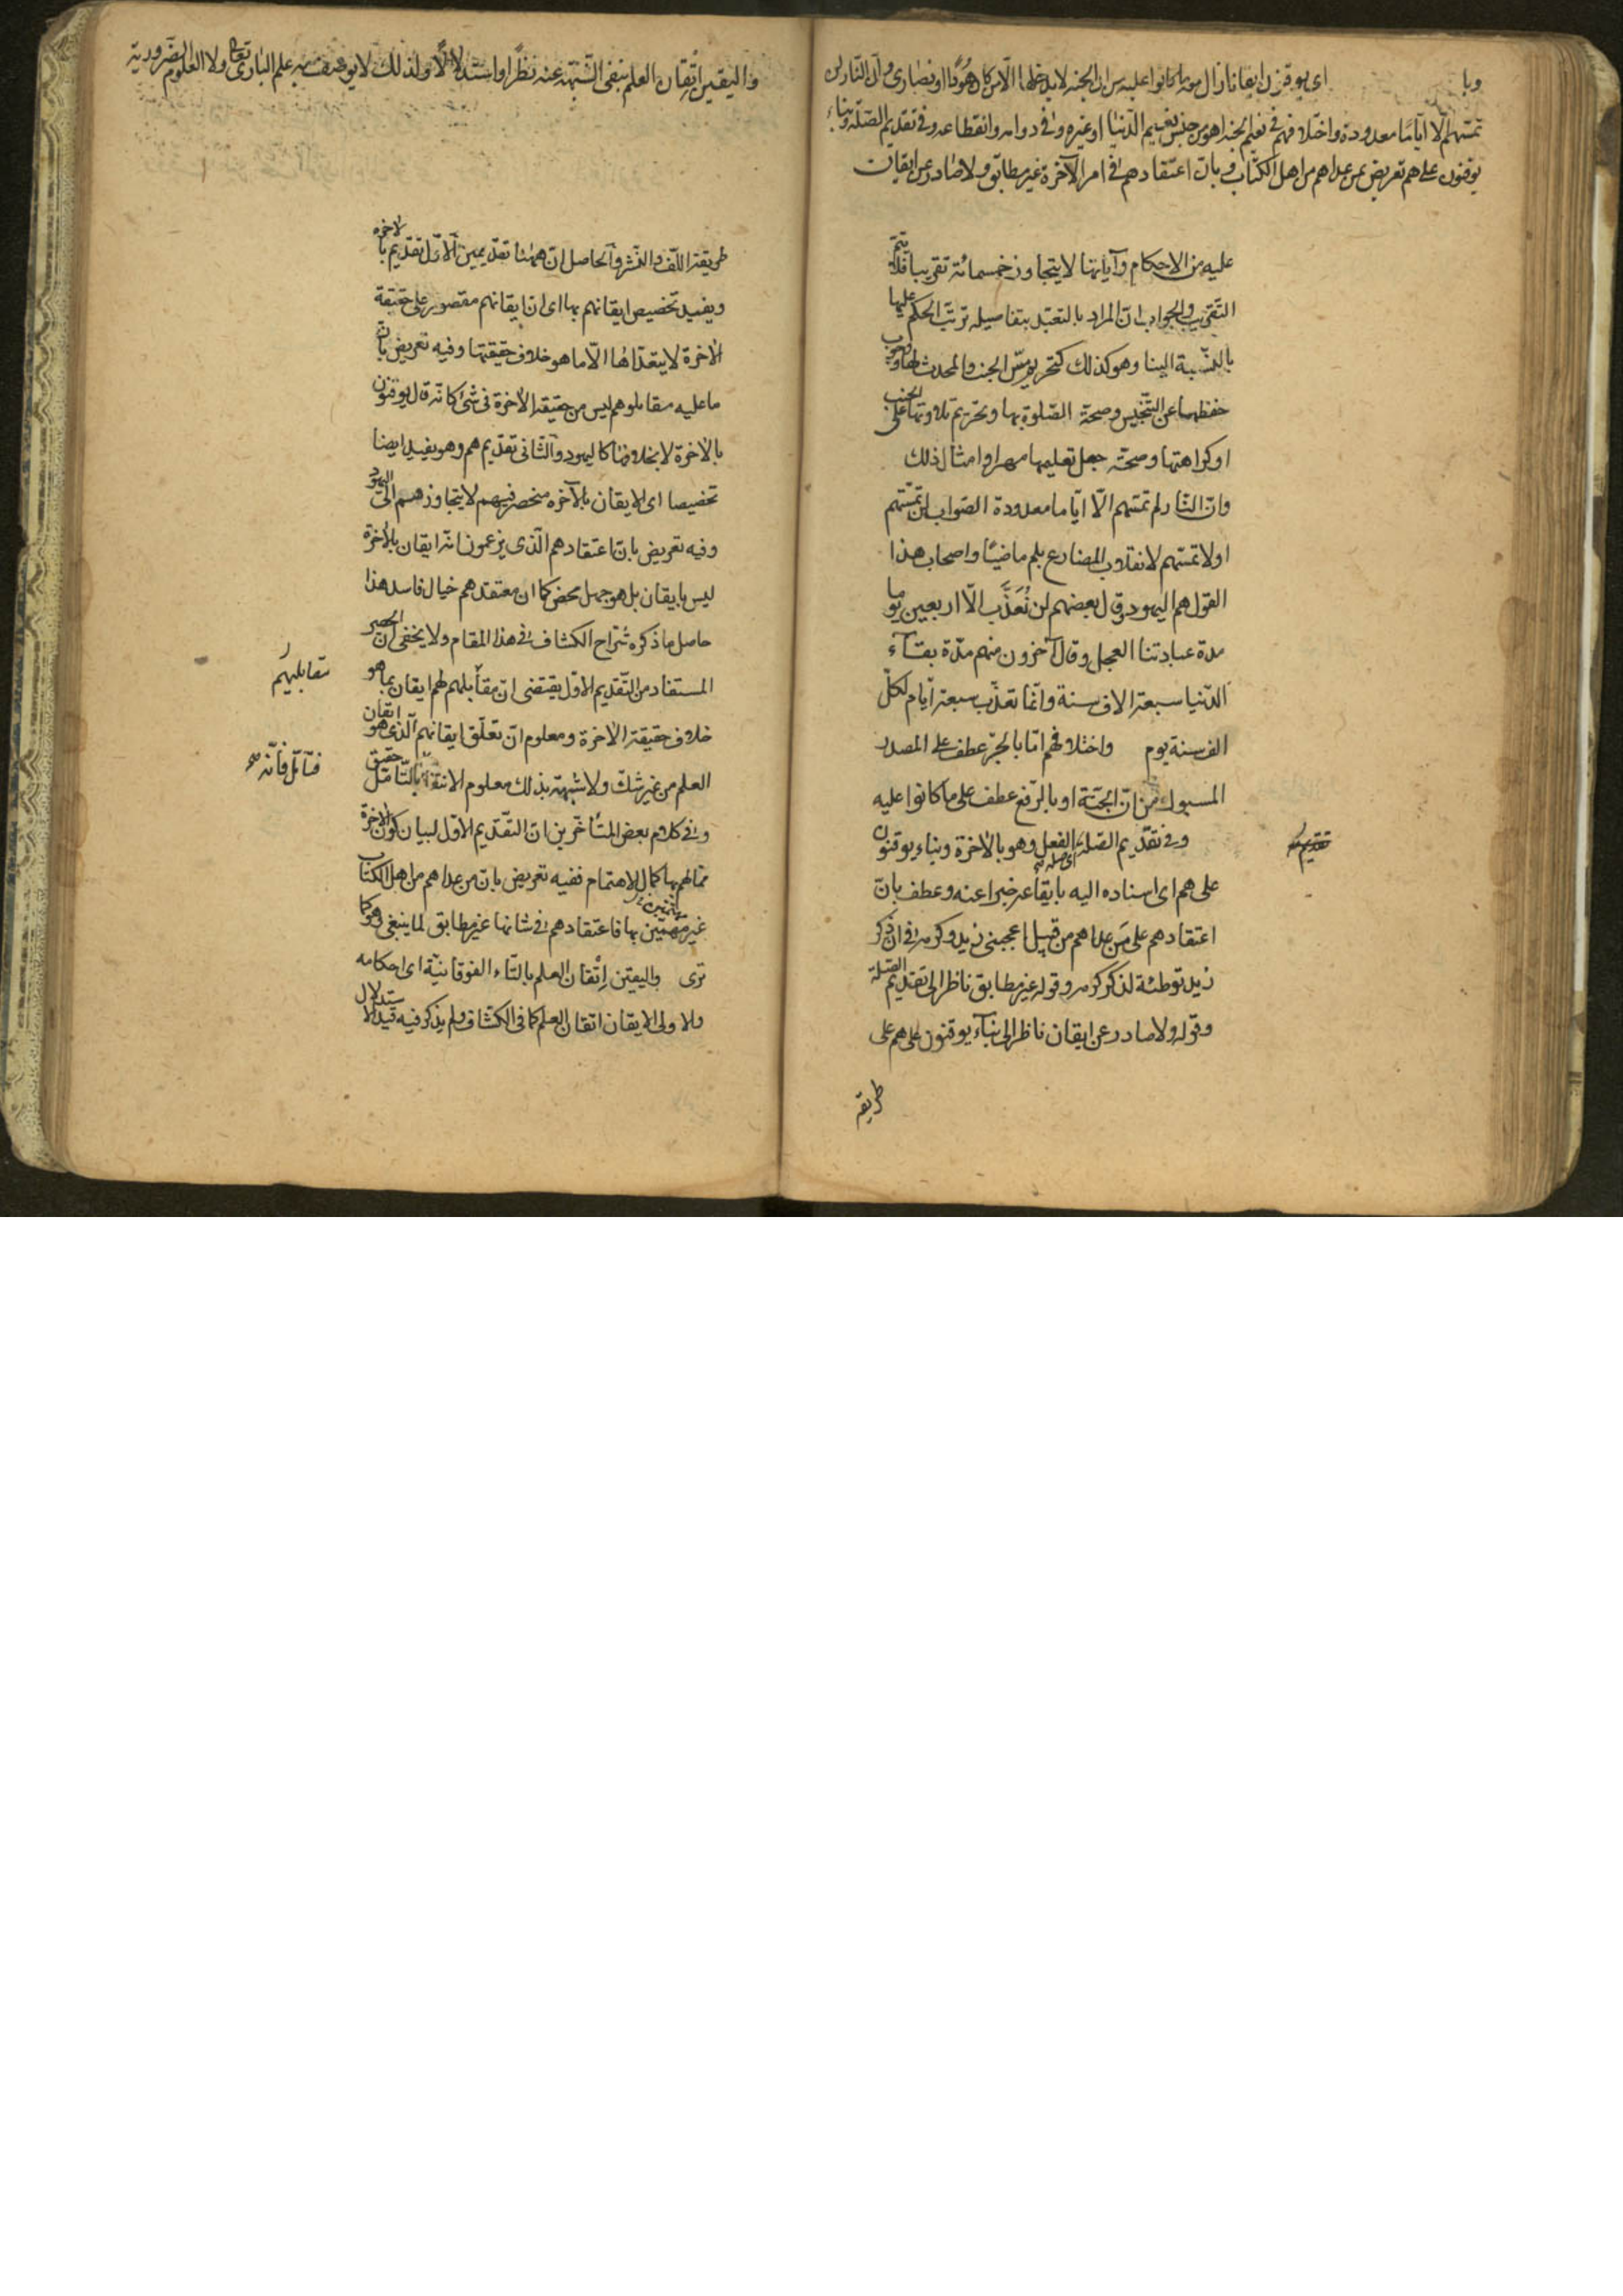 اى يوقنون ايقانا زال معه ما كانوا عليه من ان الجنة لا يدخلها الّا من كان هُودًا او نصارى وأن النار لن
تمسّهم الّا ايّامًا معدودة واختلافهم فى نعيم الجنة اهو من جنس نعيم الدّنيا او غيره وفى دوامه وانقطاعه وفى تقديم الصّلة وبناء
يوقنون على هم تعريض بمن عداهم من اهل الكتاب وبانّ اعتقادهم فى امر الآخرة غير مطابق ولا صادر عن ايقان
عليه من الاحكام وآياتها لا يتجاوز خمسمائة تقريبا فلا يتمّ
التقريب والجواب انّ المراد بالتعبّد بتفاصيله ترتّب الحكم عليها
بالنّسبة الينا وهو كذلك كتحريم مسّ الجنب والمحدث لها ووجوب
حفظها عن التّنجيس وصحة الصّلوة بها وتحريم تلاوتها على الجنب
او كراهتها وصحّة جعل تعليمها مهرا وامثال ذلك
وانّ النّار لم تمسّهم الّا ايّاما معدودة الصّواب لن تمسّهم
او لا تمسّهم لانقلاب المضارع بلم ماضيًا واصحاب هذا
القول هم اليهود وقال بعضهم لن نُعَذَّب الّا اربعين يوما
مدة عبادتنا العجل وقال آخرون منهم مدّة بقآء
الدّنيا سبعة الاف سنة وانّما نعذّب سبعة ايّام لكلّ
الف سنة يوم واختلافهم امّا بالجرّ عطف على المصدر
المسبوك من انّ الجنّة او بالرّفع عطف على ما كانوا عليه
وفى تقديم الصّلة اى صلة الفعل وهو بالآخرة وبناء يوقنون
تقديم
على هم اى اسناده اليه بايقاعه خبرا عنه وعطف بانّ
اعتقادهم على مَن عداهم من قبيل اعجبنى زيد وكرمه فى ان ذكر
زيد توطئة لذكر كرمه وقوله غير مطابق ناظر الى تقديم الصّلة
وقوله ولا صادر عن ايقان ناظر الى بنآء يوقنون على هم على
طريقة
واليقين اتقان العلم بنفى الشّبهة عنه نظرًا واستدلالًا ولذلك لا يوصف به علم البارى تعالى ولا العلوم الضّرورية
طريقة اللّف والنّشر والحاصل انّ ههنا تقديمين الاوّل تقديم بالآخرة
ويفيد تخصيص ايقانهم بها اى انّ ايقانهم مقصور على حقيقة
الآخرة لا يتعدّاها الّا ما هو خلاف حقيقتها وفيه تعريض بانّ
ما عليه مقابلوهم ليس من حقيقة الآخرة فى شئ كانّه قال يوقنون
بالآخرة لا بخلافها كاليهود والثّانى تقديم هم وهو يفيد ايضا
تخصيصا اى الايقان بالآخرة منحصر فيهم لا يتجاوزهم الى اليهود
وفيه تعريض بانّ اعتقادهم الّذى يزعمون انّه ايقان بالآخرة
ليس بايقان بل هو جهل محض كما ان معتقدهم خيال فاسد هذا
حاصل ما ذكره شرّاح الكشاف فى هذا المقام ولا يخفى انّ الحصر
المستفاد من التّقديم الاوّل يقتضى انّ مقابليهم لهم ايقان بما هو
مقابليهم
خلاف حقيقة الآخرة ومعلوم انّ تعلّق ايقانهم الّذى هو اتقان
العلم من غير شكّ ولا شبهة بذلك معلوم الانتفاء حقيق بالتّامّل
فتأمّل فانّه
وفى كلام بعض المتأخّرين انّ التقديم الاوّل لبيان كون الآخرة
ممّا لهم بها كمال الاهتمام ففيه تعريض بان من عداهم من اهل الكتاب
غير مهتمّين بها فاعتقادهم فى شانها غير مطابق لما ينبغى وهو كما
ترى واليقين اِتْقان العلم بالتّاء الفوقانيّة اى احكامه
والاولى الايقان اتقان العلم كما فى الكشاف ولم يذكر فيه قيد الاستدلال